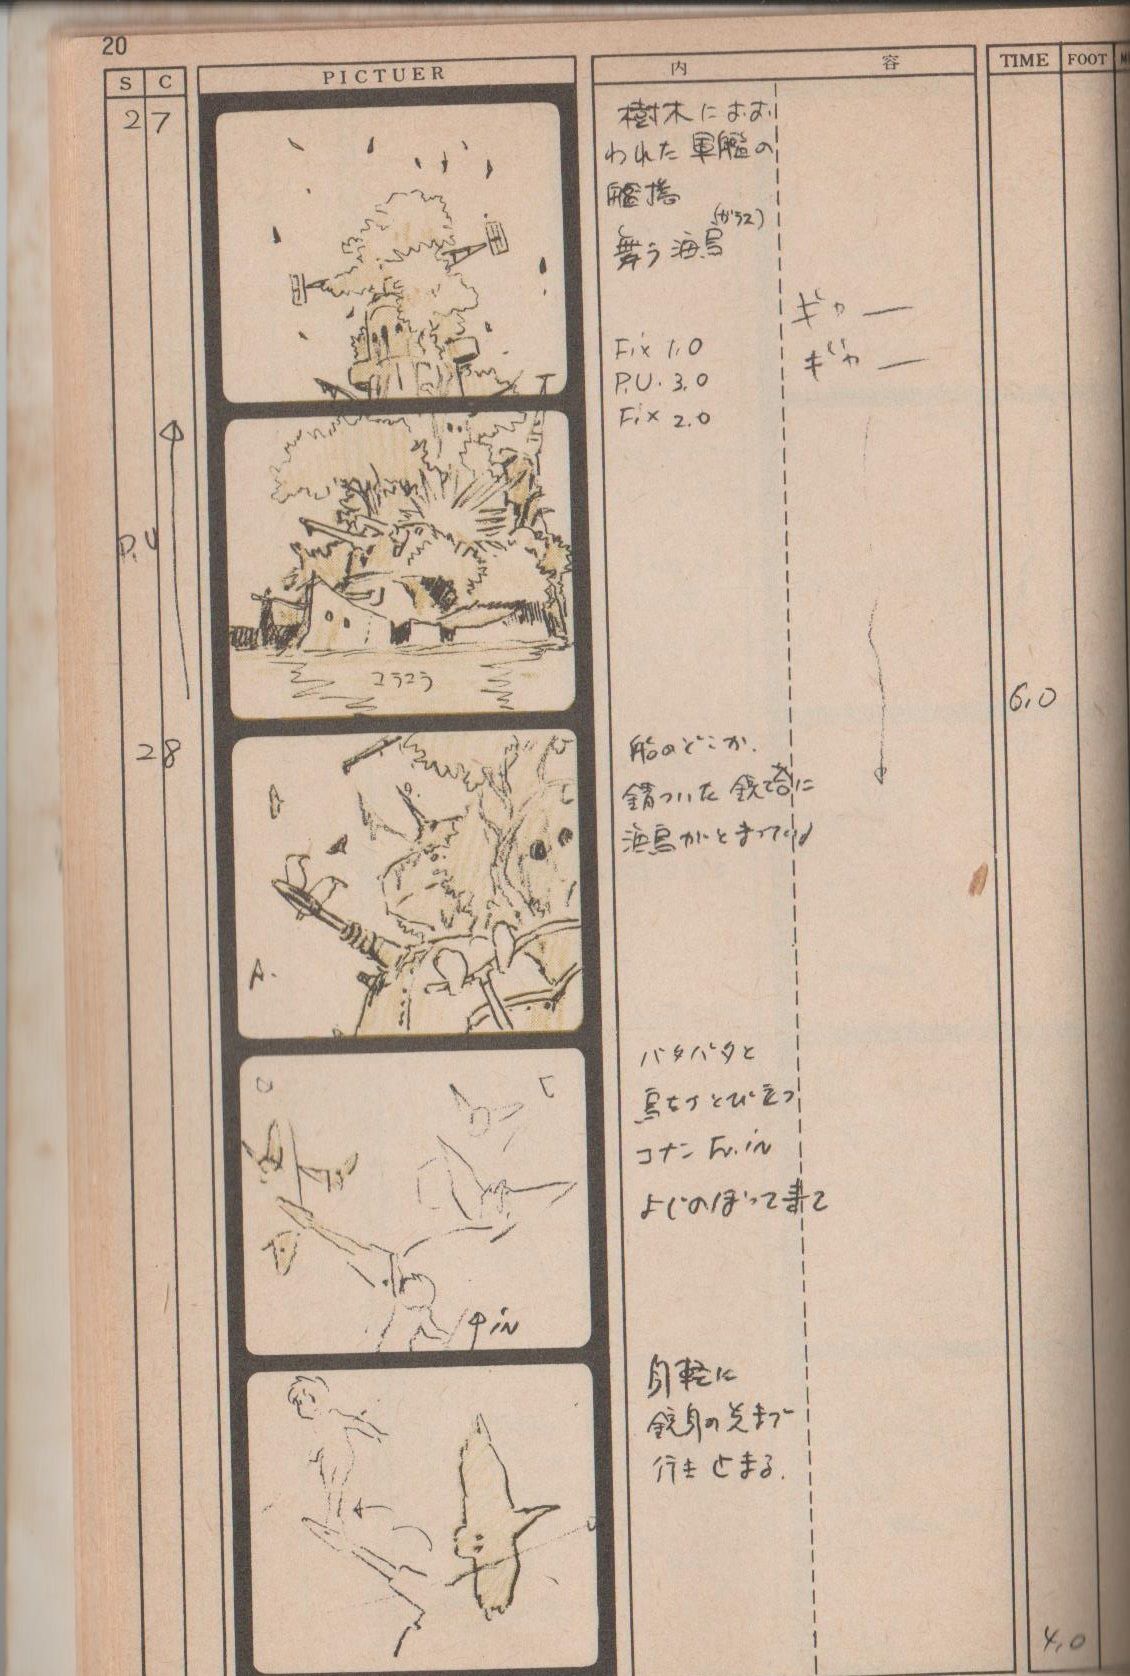 20
S C PICTUER 内 容 TIME FOOT
27
樹木におお
われた軍艦の
艦橋
(カラス)
舞う海鳥
ギャー
ギャー
Fix 1.0
P.U. 3.0
Fix 2.0
P.U
ユラユラ
6.0
28
船のどこか.
錆ついた銃塔に
海鳥がとまっている
A.
バタバタと
鳥たちとび立つ
コナン Fr.in
よじのぼって来て
in
身軽に
銃身の先まで
行き止まる.
4.0